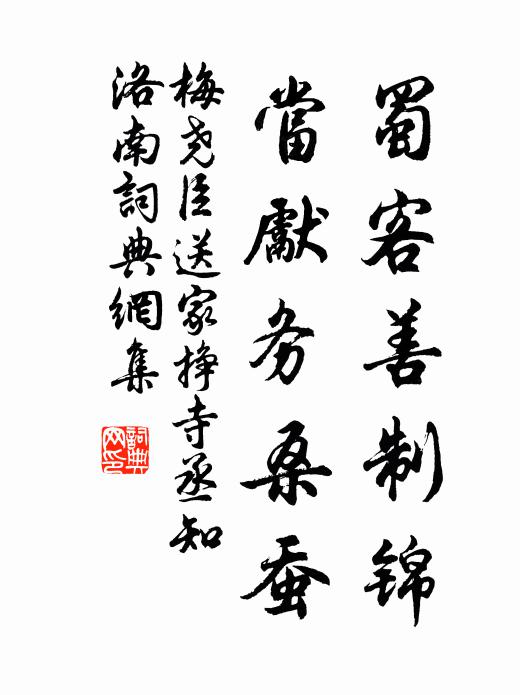 蜀客善制锦
當獻务桑蚕
梅尧臣送家挣寺丞知
洛南詞典網集
詞典网印